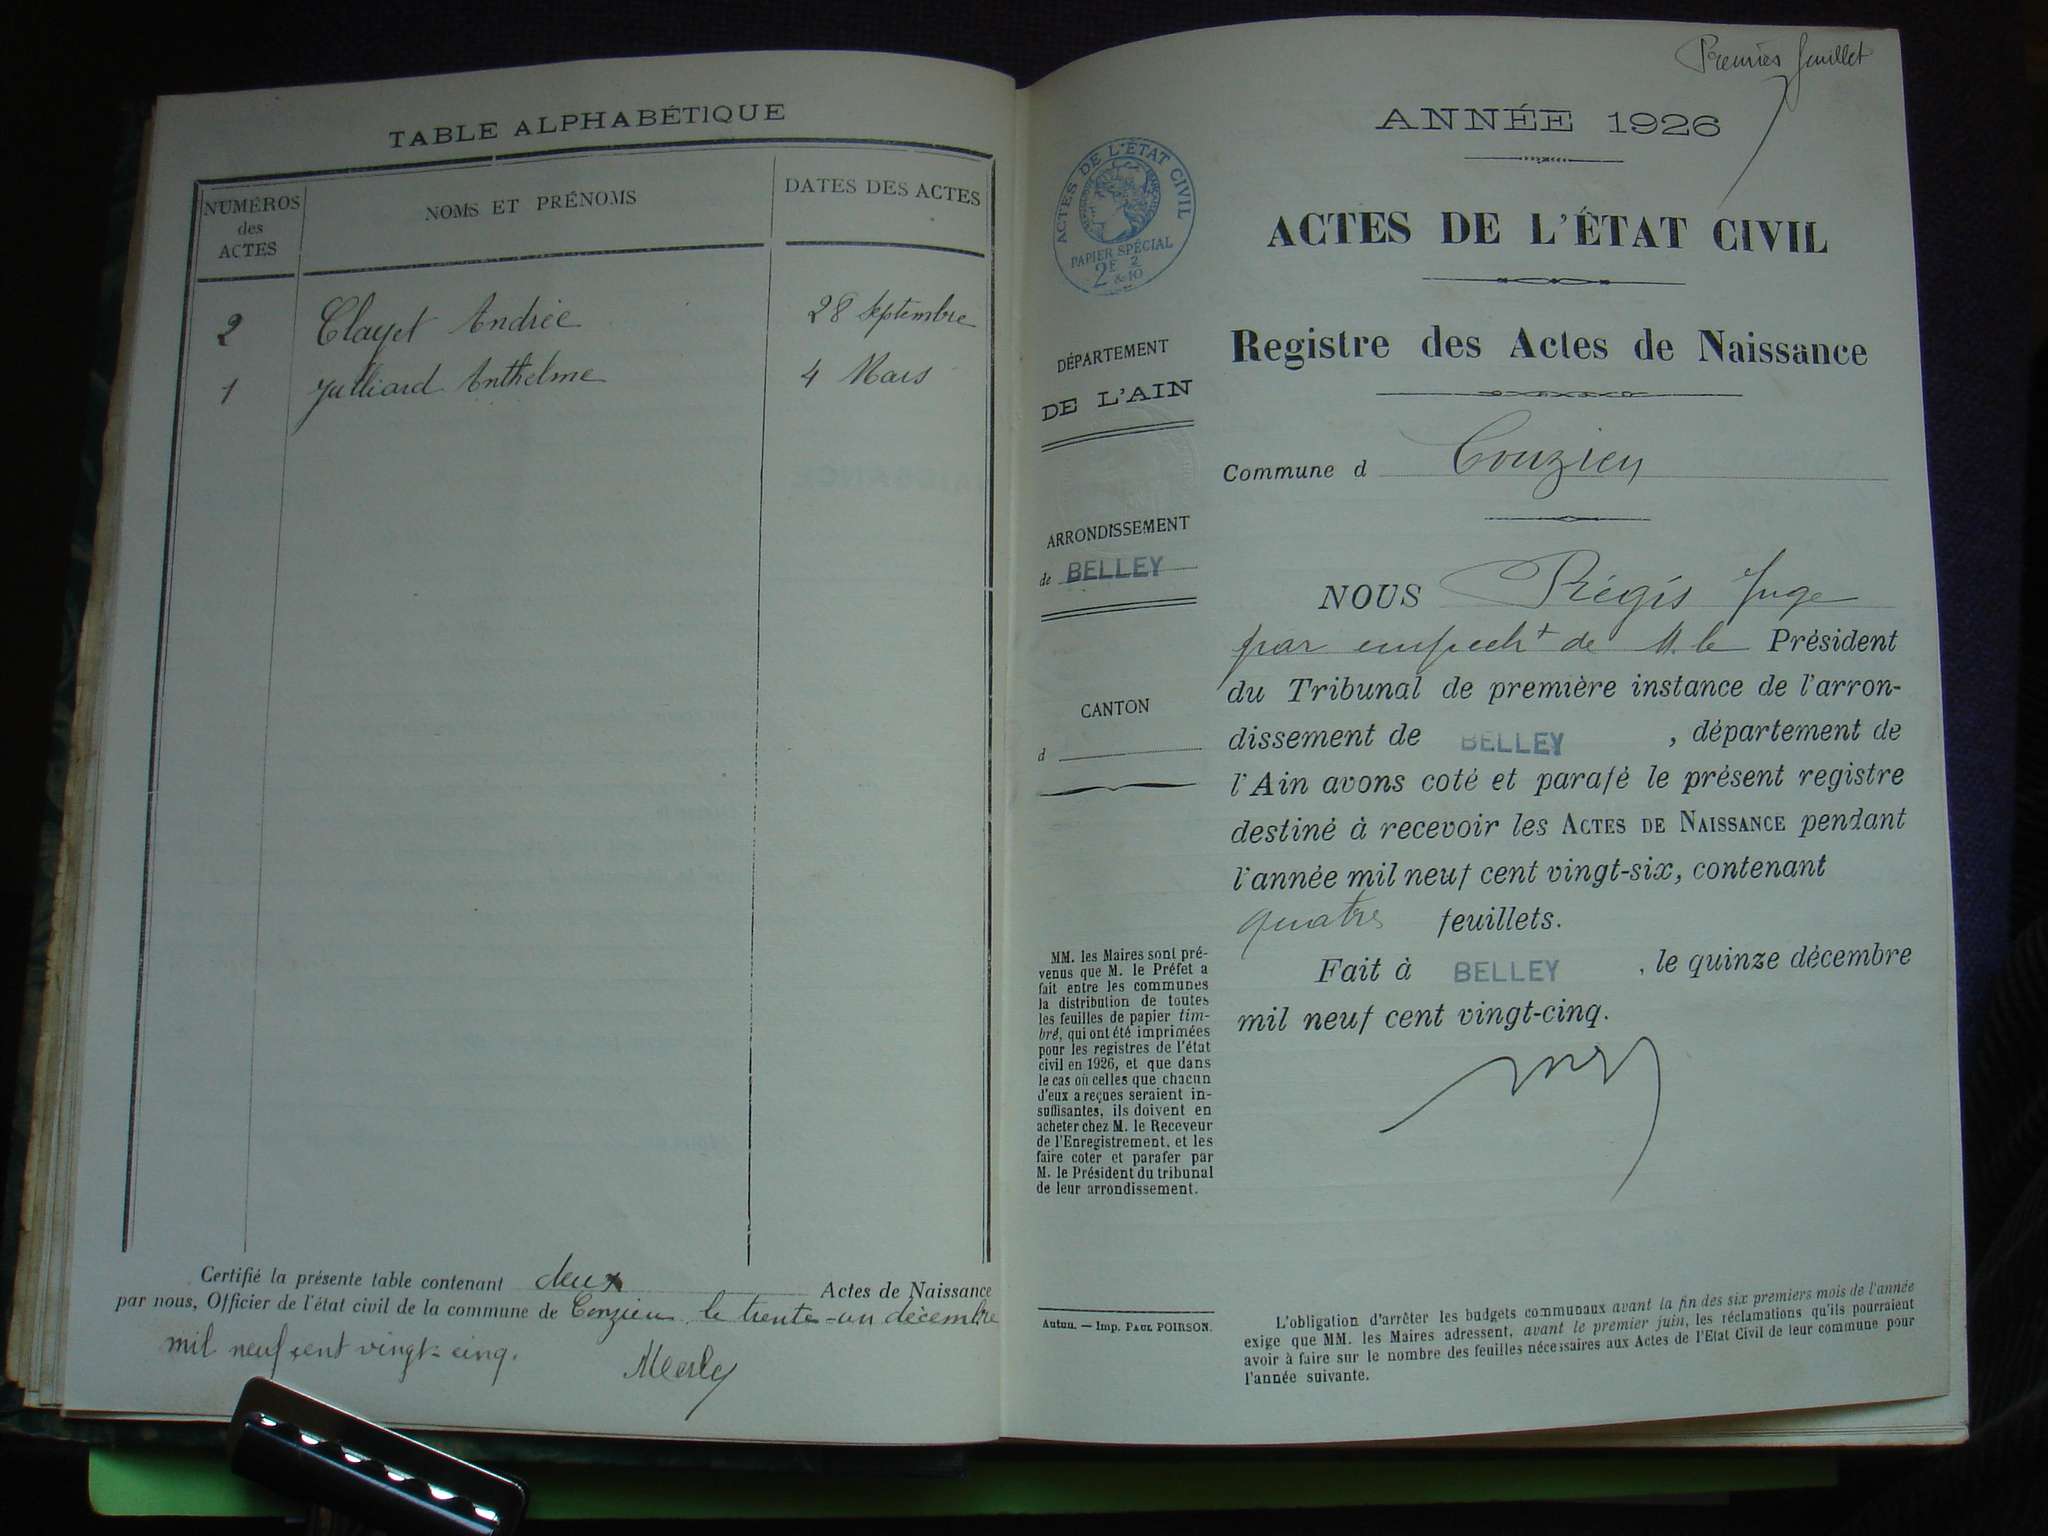 TABLE ALPHABÉTIQUE
NUMÉROS
des
ACTES
NOMS ET PRÉNOMS
DATES DES ACTES
2 Clayet Andrée 28 Septembre
1 Julliard Anthelme 4 Mars
Certifié la présente table contenant deux Actes de Naissance
par nous, Officier de l'état civil de la commune de Conzieu le trente-un décembre
mil neuf cent vingt-cinq.
Merley
Premier feuillet
ANNÉE 1926
ACTES DE L'ÉTAT CIVIL
PAPIER SPÉCIAL
2F 2
&10
ACTES DE L'ÉTAT CIVIL
Registre des Actes de Naissance
Commune d Conzieu
DÉPARTEMENT
DE L'AIN
ARRONDISSEMENT
de BELLEY
CANTON
d
NOUS Régis Juge
par empecht de M. le Président
du Tribunal de première instance de l'arron-
dissement de BELLEY , département de
l'Ain avons coté et parafé le présent registre
destiné à recevoir les ACTES DE NAISSANCE pendant
l'année mil neuf cent vingt-six, contenant
quatre feuillets.
Fait à BELLEY , le quinze décembre
mil neuf cent vingt-cinq.
MM. les Maires sont pré-
venus que M. le Préfet a
fait entre les communes
la distribution de toutes
les feuilles de papier tim-
bré, qui ont été imprimées
pour les registres de l'état
civil en 1926, et que dans
le cas où celles que chacun
d'eux a reçues seraient in-
suffisantes, ils doivent en
acheter chez M. le Receveur
de l'Enregistrement, et les
faire coter et parafer par
M. le Président du tribunal
de leur arrondissement.
Autun. — Imp. PAUL POIRSON.
L'obligation d'arrêter les budgets communaux avant la fin des six premiers mois de l'année
exige que MM. les Maires adressent, avant le premier juin, les réclamations qu'ils pourraient
avoir à faire sur le nombre des feuilles nécessaires aux Actes de l'Etat Civil de leur commune pour
l'année suivante.